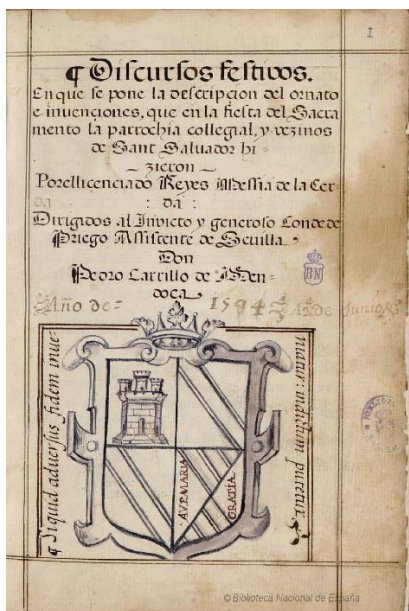 1
¶ Discursos festivos.
En que se pone la descripcion del ornato
e invenciones, que en la fiesta del Sacra
mento la parrochia collegial, y vezinos
de Sant Salvador hi-
zieron
Por el licenciado Reyes Messia de la Cer-
da
Dirigidos al Invicto y generoso Conde de
Priego Assistente de Sevilla.
Don
Pedro Carrillo de Men-
doca
BN
Año de = 1594 A de Junio
¶ Siquid adversus fidem inve-
AVE MARIA
GRATIA
© Biblioteca Nacional de España